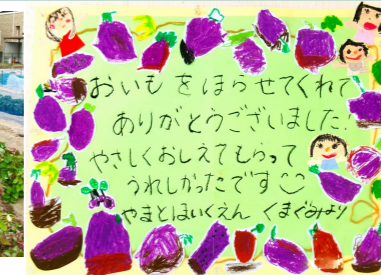 おいもをほらせてくれて
ありがとうございました!
やさしくおしえてもらって
うれしかったです
やまとほいくえん くまぐみより